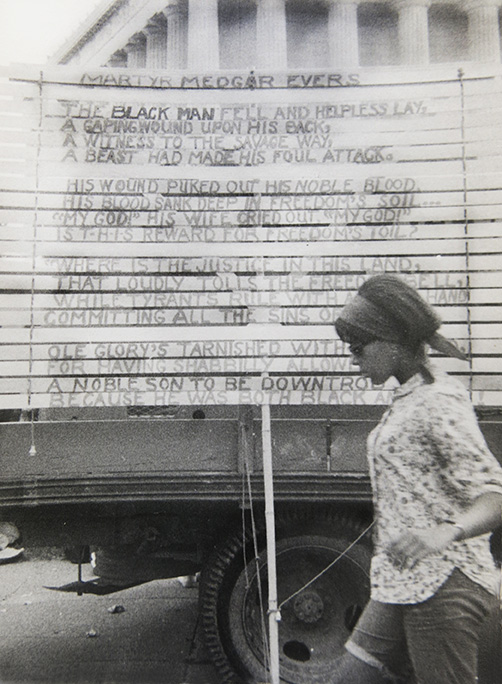 MARTYR MEDGAR EVERS
THE BLACK MAN FELL AND HELPLESS LAY,
A GAPING WOUND UPON HIS BACK,
A WITNESS TO THE SAVAGE WAY,
A BEAST HAD MADE HIS FOUL ATTACK.
HIS WOUND PUKED OUT HIS NOBLE BLOOD,
HIS BLOOD SANK DEEP IN FREEDOM'S SOIL...
"MY GOD!" HIS WIFE CRIED OUT "MY GOD!"
IS T-H-I-S REWARD FOR FREEDOM'S TOIL?
"WHERE IS THE JUSTICE IN THIS LAND,
THAT LOUDLY TOLLS THE FREEDOM BELL,
WHILE TYRANTS RULE WITH HAND
COMMITTING ALL THE SINS OF
OLE GLORY'S TARNISHED WITH
FOR HAVING SHABBILY ALLOWE
A NOBLE SON TO BE DOWNTROD
BECAUSE HE WAS BOTH BLACK AN